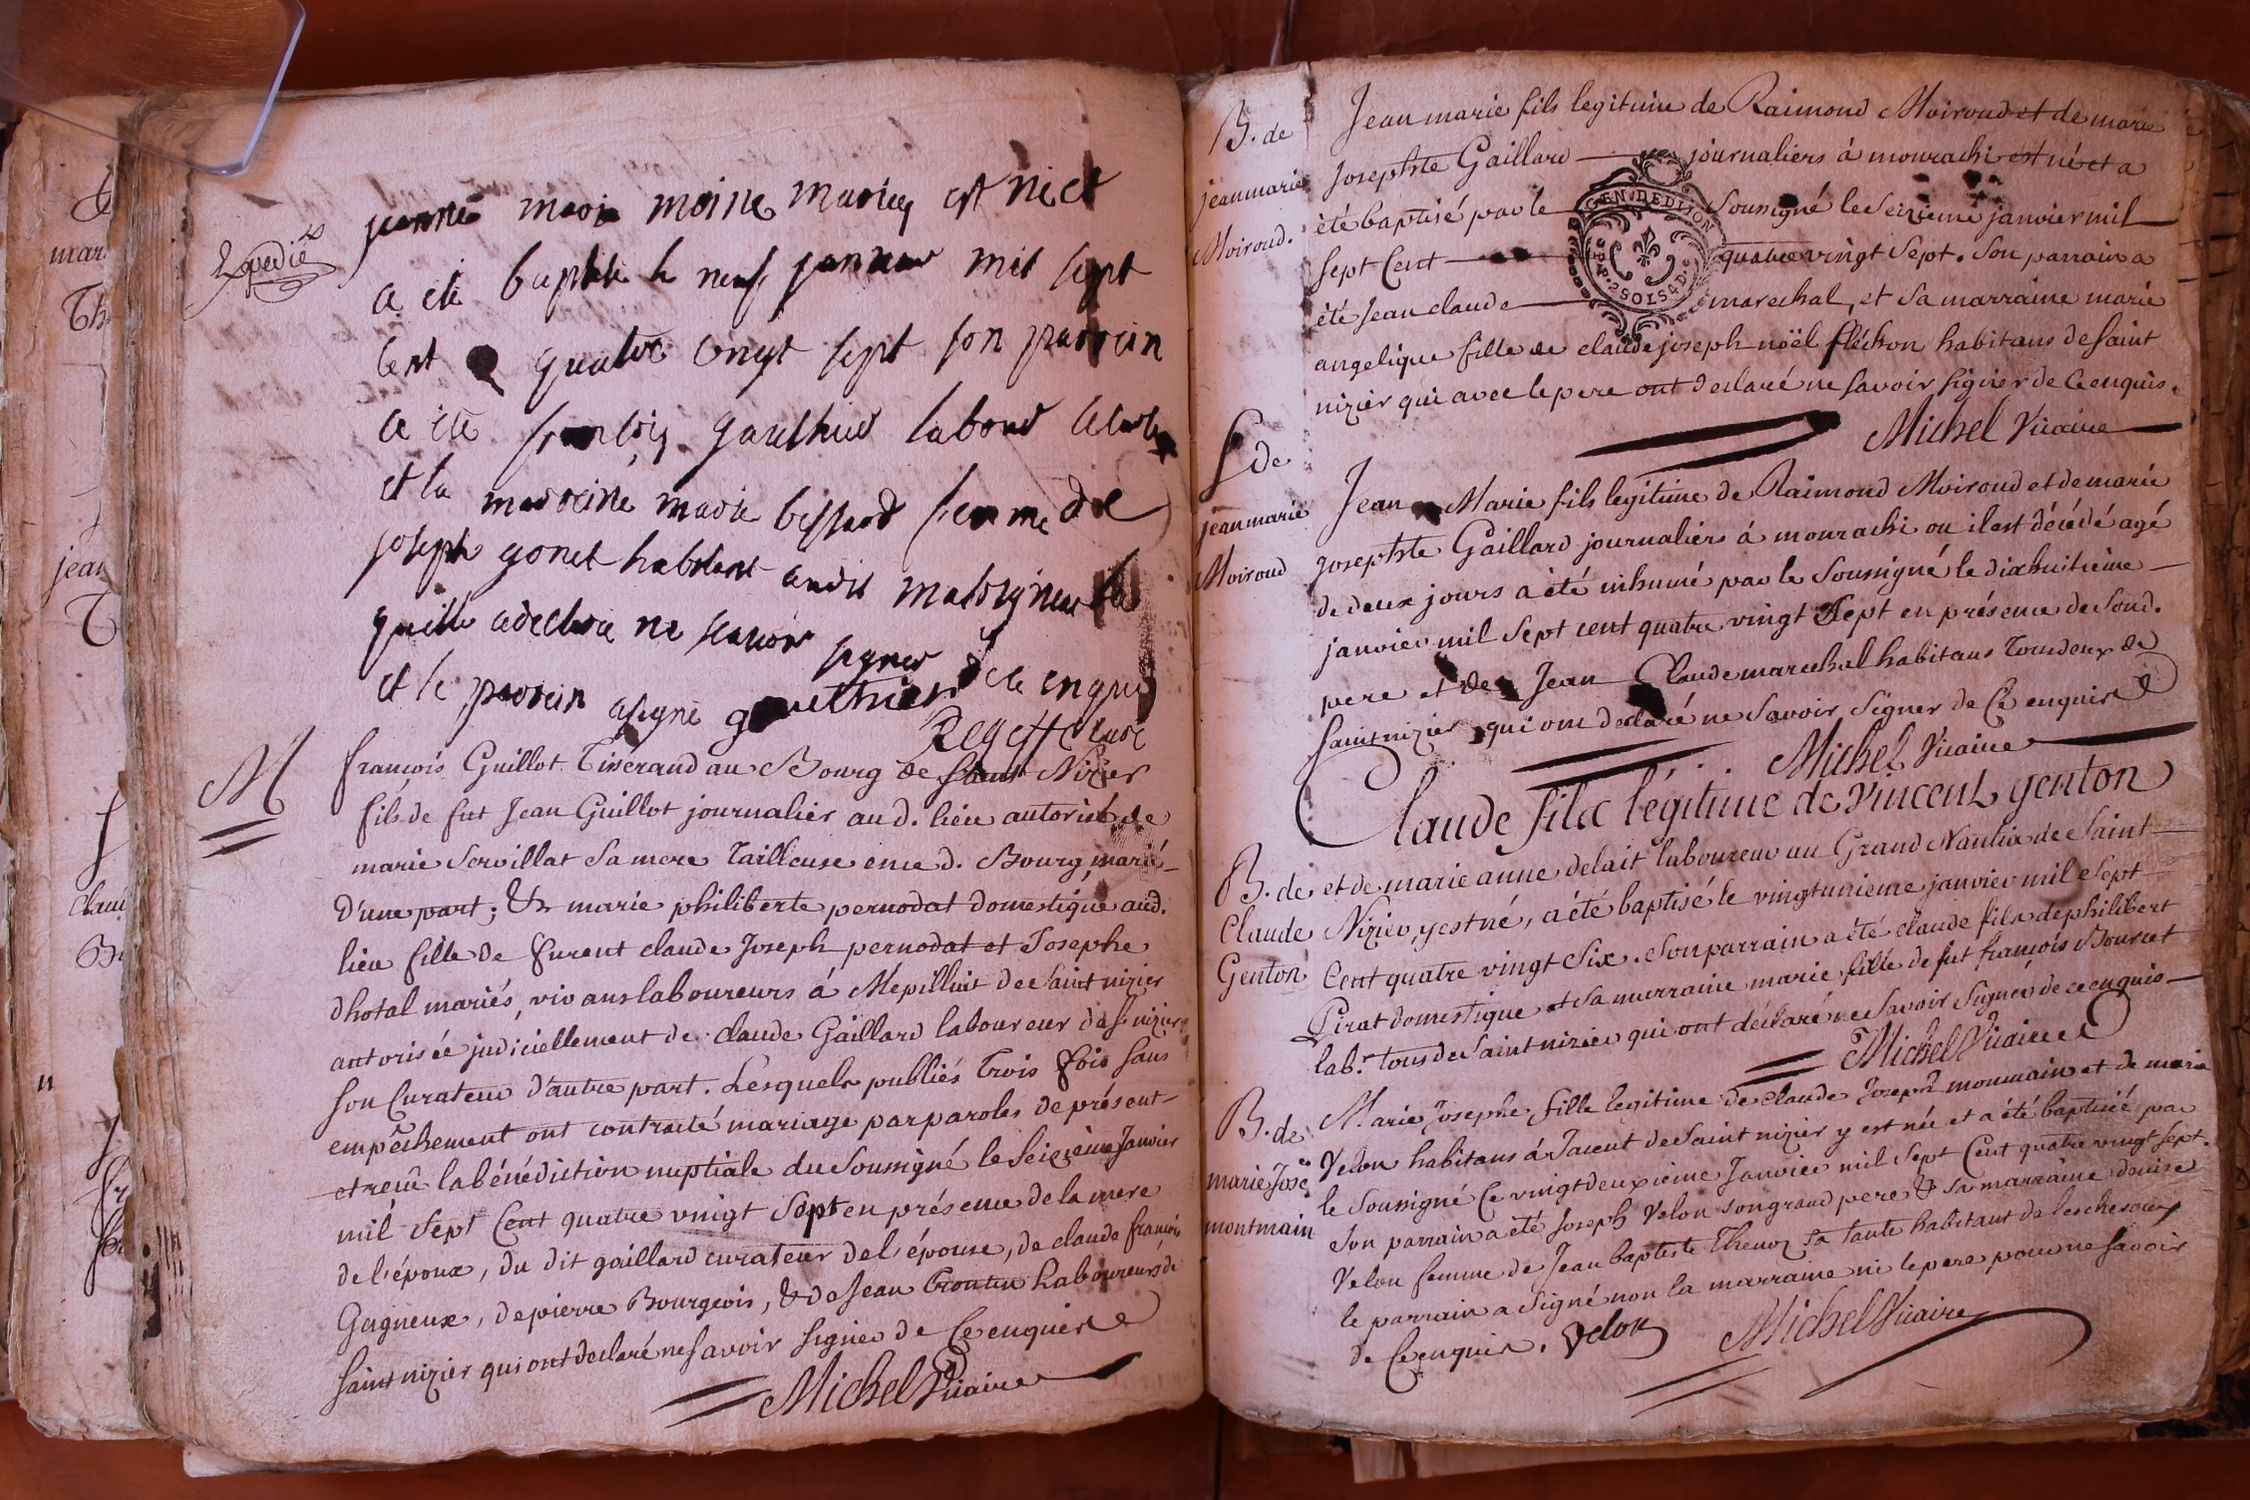 Expedié
jeanne marie moine mariez est né et
a eté baptisé le neuf janvier mil sept
cent quatre vingt sept son parrein
a ete françois gaulthier labour
et la marreine marie bessard femme de
joseph gonet habitant audit
quelle a declaré ne scavoir signer de ce enquis
et le parrein a signé gaulthier
curé
M
françois Guillot Tisserand au Bourg de Saint Nizier
fils de fut Jean Guillot journalier au d. lieu autorisé de
marie Servillat Sa mere tailleuse en ce d. Bourg, mariés
d'une part; & marie philiberte pernodat domestique aud.
lieu fille de furent claude Joseph pernodat et Josephe
dhotal mariés, vivans laboureurs á Mepilliat de Saint nizier
autorisée judiciellement de claude Gaillard laboureur de St nizier
son Curateur d'autre part. Lesquels publiés Trois fois sans
empêchement ont contracté mariage par paroles de présent
et reçu la bénédiction nuptiale du Soussigné le Seizième Janvier
mil Sept Cent quatre vingt Sept en présence de la mere
de l'époux, du dit gaillard curateur de l'épouse, de claude françois
Gagneux, de pierre Bourgeois, & de Jean laboureurs de
Saint nizier qui ont declaré ne savoir signer de Ce enquis
Michel Vicaire
B. de
jean marie
Moiroud.
Jean marie fils legitime de Raimond Moiroud et de marie
Josephte Gaillard journaliers á mourachi est né et a
été baptisé par le Soussigné le Seizieme janvier mil
GEN. DE DIJON
sept Cent quatre vingt Sept. Son parrain a
été Jean claude marechal, et Sa marraine marie
angelique fille de claude joseph noël fléchon habitans de Saint
nizier qui avec le pere ont declaré ne Savoir signer de Ce enquis.
Michel Vicaire
S. de
jean marie
Moiroud
Jean Marie fils legitime de Raimond Moiroud et de marie
Josephte Gaillard journaliers á mourachi ou il est décédé agé
de deux jours a été inhumé par le Soussigné le dixhuitieme
janvier mil Sept cent quatre vingt Sept en présence de Sond.
pere et de Jean Claude marechal habitans Tous deux de
Saint nizier qui ont declaré ne Savoir Signer de Ce enquis
Michel Vicaire
Claude fils légitime de Vincent genton
B. de
Claude
Genton
et de marie anne delait laboureur au Grand Nantua de Saint
Nizier, y est né, a été baptisé le vingtunieme janvier mil Sept
Cent quatre vingt Six. Son parrain a été claude fils de philibert
Pirat domestique et Sa marraine marie fille de fut françois Bourcet
lab.r tous de Saint nizier qui ont déclaré ne Savoir Signer de ce enquis
Michel Vicaire
B. de
marie Jose
montmain
Marie Josephe fille legitime de claude Joseph monmain et de marie
Velon habitans á Jacent de Saint nizier y est née et a été baptisée par
le Soussigné Ce vingtdeuxieme Janvier mil Sept Cent quatre vingt Sept.
Son parrain a été Joseph Velon Son grand pere & sa marraine denise
Velon femme de Jean baptiste Thevoz Sa tante habitant de lescheroux
le parrain a Signé non la marraine ni le pere pour ne Savoir
de Ce enquis. Velon Michel Vicaire